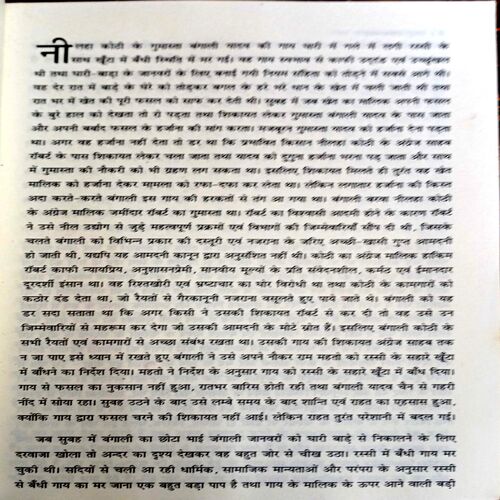 नीलहा कोठी के गुमास्ता बंगाली यादव की गाय थारी में गले में लगी रस्सी के
साथ खूँटा में बँधी स्थिति में मर गई। वह गाय स्वभाव से काफी उद्दंड एवं उच्छृंखल
थी तथा थारी-बाड़ा के जानवरों के लिए बनाई गयी नियम संहिता को तोड़ने में सबसे आगे थी।
वह देर रात में बाड़े के घेरे को तोड़कर बगल के हरे भरे धान के खेत में चली जाती थी तथा
रात भर में खेत की पूरी फसल को साफ कर देती थी। सुबह में जब खेत का मालिक अपनी फसल
के बुरे हाल को देखता तो रो पड़ता तथा शिकायत लेकर गुमास्ता बंगाली यादव के पास जाता
और अपनी बर्बाद फसल के हर्जाना की मांग करता। मजबूरन गुमास्ता यादव को हर्जाना देना पड़ता
था। अगर वह हर्जाना नहीं देता तो डर था कि प्रभावित किसान नीलहा कोठी के अंग्रेज साहब
रॉबर्ट के पास शिकायत लेकर चला जाता तथा यादव को दुगुना हर्जाना भरना पड़ जाता और साथ
में गुमास्ता की नौकरी को भी ग्रहण लग सकता था। इसलिए शिकायत मिलते ही तुरंत वह खेत
मालिक को हर्जाना देकर मामला को रफा-दफा कर लेता था। लेकिन लगातार हर्जाना की किस्त
अदा करते-करते बंगाली इस गाय की हरकतों से तंग आ गया था। बंगाली बरवा नीलहा कोठी
के अंग्रेज मालिक जमींदार रॉबर्ट का गुमास्ता था। रॉबर्ट का विश्वासी आदमी होने के कारण रॉबर्ट
ने उसे नील उद्योग से जुड़े महत्वपूर्ण प्रक्रमों एवं विभागों की जिम्मेवारियाँ सौंप दी थी, जिसके
चलते बंगाली को विभिन्न प्रकार की दस्तूरी एवं नजराना के जरिए अच्छी-खासी गुप्त आमदनी
हो जाती थी, यद्यपि यह आमदनी कानून द्वारा अनुसंशित नहीं थी। कोठी का अंग्रेज मालिक हाकिम
रॉबर्ट काफी न्यायप्रिय, अनुशासनप्रेमी, मानवीय मूल्यों के प्रति संवेदनशील, कर्मठ एवं ईमानदार
दूरदर्शी इंसान था। वह रिश्तखोरी एवं भ्रष्टाचार का घोर विरोधी था तथा कोठी के कामगारों को
कठोर दंड देता था, जो रैयतों से गैरकानूनी नजराना वसूलते हुए पाये जाते थे। बंगाली को यह
डर सदा सताता था कि अगर किसी ने उसकी शिकायत रॉबर्ट से कर दी तो वह उसे उन
जिम्मेवारियों से महरूम कर देगा जो उसकी आमदनी के मोटे स्रोत हैं। इसलिए बंगाली कोठी के
सभी रैयतों एवं कामगारों से अच्छा संबंध रखता था। उसकी गाय की शिकायत अंग्रेज साहब तक
न जा पाए इसे ध्यान में रखते हुए बंगाली ने उसे अपने नौकर राम महतो को रस्सी के सहारे खूँटा
में बाँधने का निर्देश दिया। महतो ने निर्देश के अनुसार गाय को रस्सी के सहारे खूँटा में बाँध दिया।
गाय से फसल का नुकसान नहीं हुआ, रातभर बारिस होती रही तथा बंगाली यादव चैन से गहरी
नींद में सोया रहा। सुबह उठने के बाद उसे लम्बे समय के बाद शान्ति एवं राहत का एहसास हुआ,
क्योंकि गाय द्वारा फसल चरने की शिकायत नहीं आई। लेकिन राहत तुरंत परेशानी में बदल गई।
जब सुबह में बंगाली का छोटा भाई जंगाली जानवरों को थारी बाड़े से निकालने के लिए
दरवाजा खोला तो अन्दर का दृश्य देखकर वह बहुत जोर से चीख उठा। रस्सी में बँधी गाय मर
चुकी थी। सदियों से चली आ रही धार्मिक, सामाजिक मान्यताओं और परंपरा के अनुसार रस्सी
से बँधी गाय का मर जाना एक बहुत बड़ा पाप है तथा गाय के मालिक के ऊपर आने वाली बड़ी